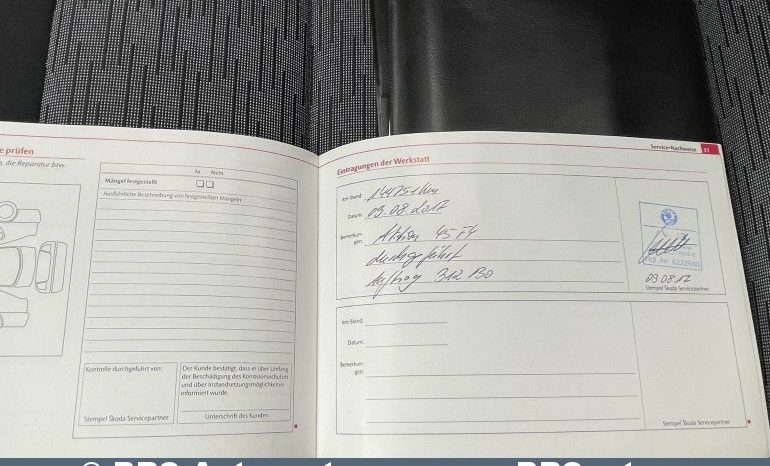 e prüfen
, die Reparatur bzw.
Ja Nein
Mängel festgestellt
Ausführliche Beschreibung von festgestellten Mängeln
Kontrolle durchgeführt von:
Stempel Škoda Servicepartner
Der Kunde bestätigt, dass er über Umfang
der Beschädigung des Korrosionsschutzes
und über Instandsetzungsmöglichkeiten
informiert wurde.
Unterschrift des Kunden
Service-Nachweise 37
Eintragungen der Werkstatt
km-Stand: 144751 km
Datum: 09.08.2017
Bemerkun-
gen: Aktion 45F4
durchgeführt
Auftrag 312 BO
09.08.17
Stempel Škoda Servicepartner
km-Stand:
Datum:
Bemerkun-
gen:
Stempel Škoda Servicepartner